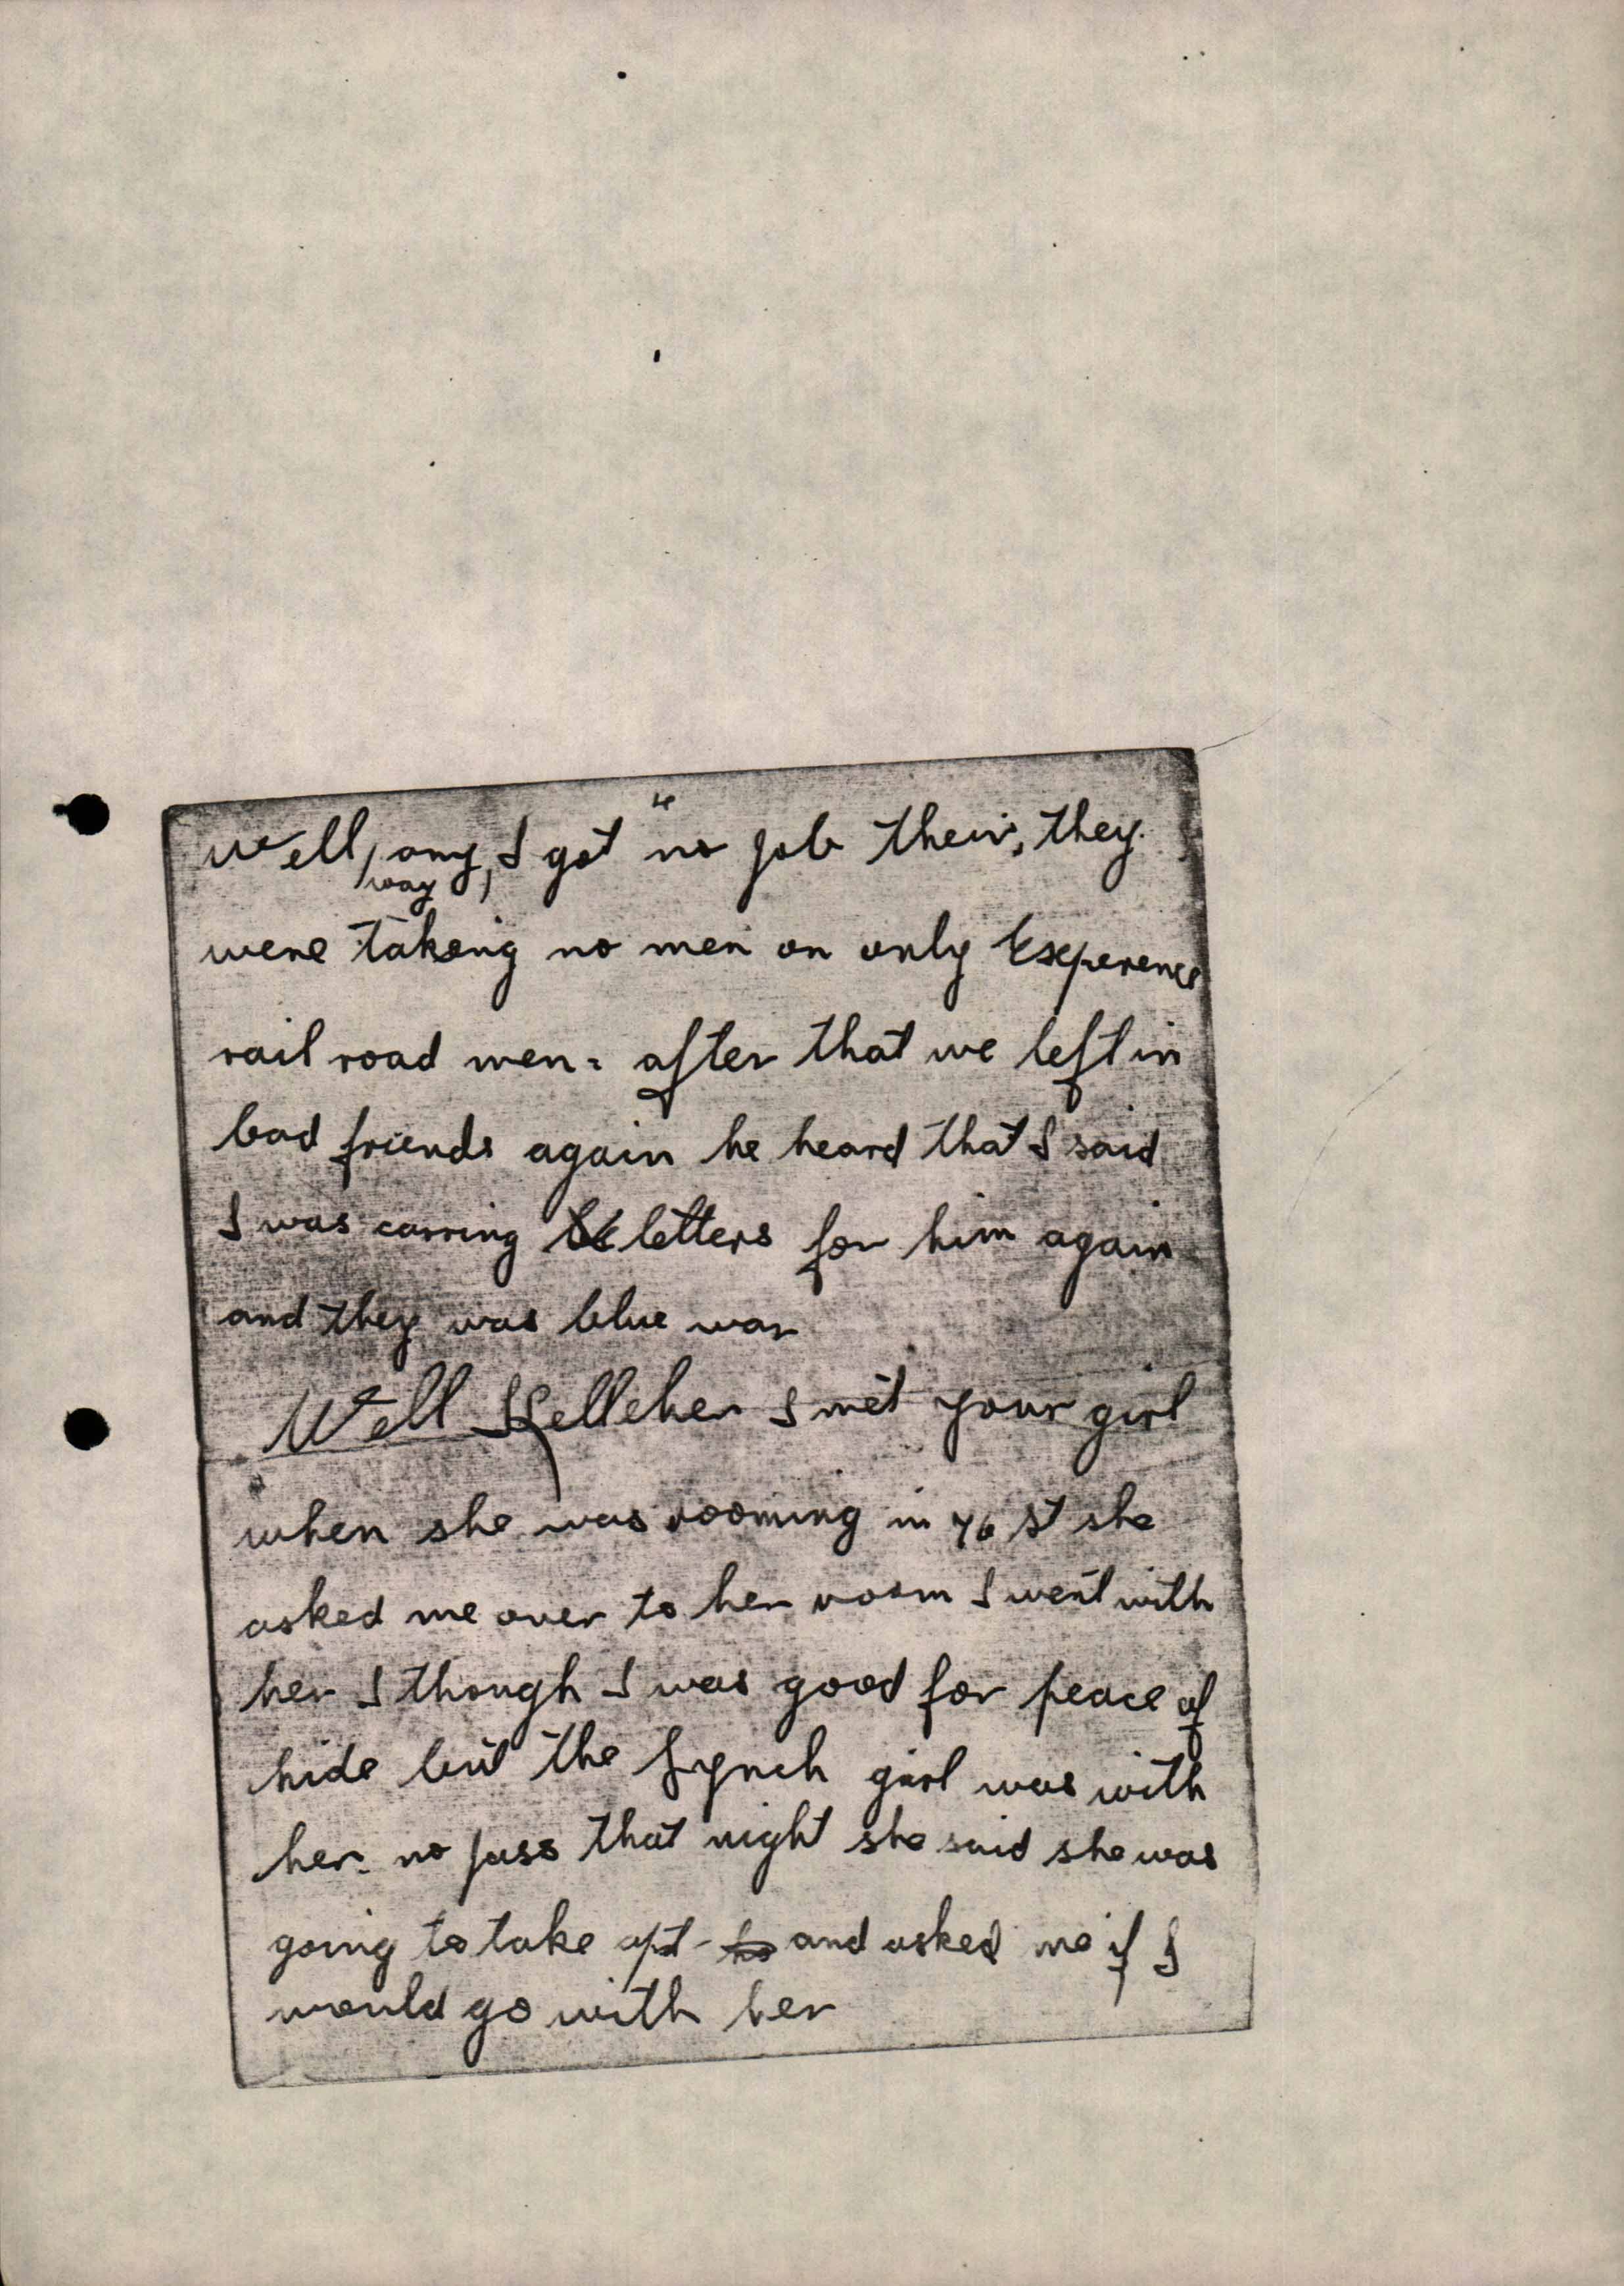 Well, any, I got no job their, they
way
were takeng no men on only Experence
rail road men = after that we left in
bad friends again he heard that I said
I was carring letters for him again
and they was blue war
Well Kelleher I met your girl
when she was rooming in 76 St she
asked me over to her room I went with
her I though I was good for peace of
hide but the Lynch girl was with
her. no jass that night she said she was
going to take apt - and asked me if I
would go with her